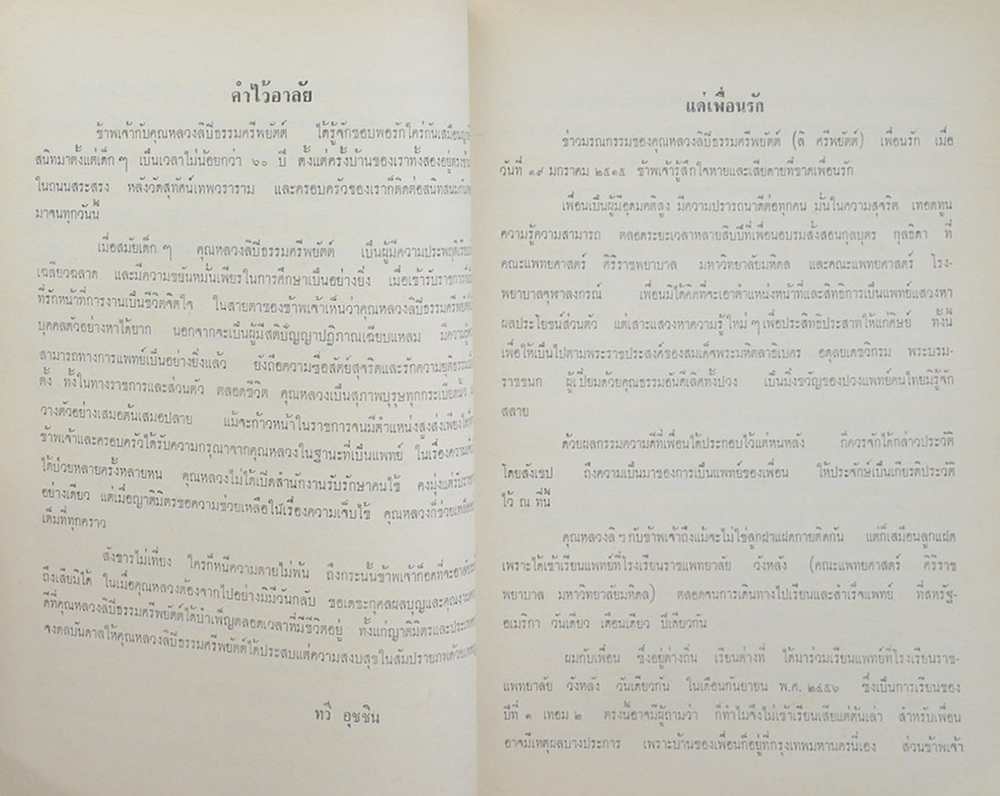 คำไว้อาลัย
ข้าพเจ้ากับคุณหลวงลิปีธรรมศรีพยัตต์ ได้รู้จักชอบพอรักใคร่กันเสมือนญาติ
สนิทมาตั้งแต่เด็ก ๆ เป็นเวลาไม่น้อยกว่า ๖๐ ปี ตั้งแต่ครั้งบ้านของเราทั้งสองอยู่
ในถนนสระสรง หลังวัดสุทัศน์เทพวราราม และครอบครัวของเราก็ติดต่อสนิทสนมกัน
มาจนทุกวันนี้
เมื่อสมัยเด็ก ๆ คุณหลวงลิปีธรรมศรีพยัตต์ เป็นผู้มีความประพฤติ
เฉลียวฉลาด และมีความขยันหมั่นเพียรในการศึกษาเป็นอย่างยิ่ง เมื่อเข้ารับราชการ
ที่รักหน้าที่การงานเป็นชีวิตจิตใจ ในสายตาของข้าพเจ้าเห็นว่าคุณหลวงลิปีธรรมศรีพยัตต์
บุคคลตัวอย่างหาได้ยาก นอกจากจะเป็นผู้มีสติปัญญาปฏิภาณเฉียบแหลม มีความ
สามารถทางการแพทย์เป็นอย่างยิ่งแล้ว ยังถือความซื่อสัตย์สุจริตและรักความยุติธรรม
ตั้ง ทั้งในทางราชการและส่วนตัว ตลอดชีวิต คุณหลวงเป็นสุภาพบุรุษทุกกระเบียดนิ้ว
วางตัวอย่างเสมอต้นเสมอปลาย แม้จะก้าวหน้าในราชการจนมีตำแหน่งสูงส่งเพียงใด
ข้าพเจ้าและครอบครัวได้รับความกรุณาจากคุณหลวงในฐานะที่เป็นแพทย์ ในเรื่องความ
ได้ป่วยหลายครั้งหลายหน คุณหลวงไม่ได้เปิดสำนักงานรับรักษาคนไข้ คงมุ่งแต่รับ
อย่างเดียว แต่เมื่อญาติมิตรขอความช่วยเหลือในเรื่องความเจ็บไข้ คุณหลวงก็ช่วยเหลือ
เต็มที่ทุกคราว
สังขารไม่เที่ยง ใครก็หนีความตายไม่พ้น ถึงกระนั้นข้าพเจ้าก็อดที่จะอาลัย
ถึงเสียมิได้ ในเมื่อคุณหลวงต้องจากไปอย่างมิมีวันกลับ ขอเดชะกุศลผลบุญและคุณงามความ
ดีที่คุณหลวงลิปีธรรมศรีพยัตต์ได้บำเพ็ญตลอดเวลาที่มีชีวิตอยู่ ทั้งแก่ญาติมิตรและประเทศ
จงดลบันดาลให้คุณหลวงลิปีธรรมศรีพยัตต์ได้ประสบแต่ความสงบสุขในสัมปรายภพด้วย
ทวี อุชชิน
แด่เพื่อนรัก
ข่าวมรณกรรมของคุณหลวงลิปีธรรมศรีพยัตต์ (ลิ ศรีพยัตต์) เพื่อนรัก เมื่อ
วันที่ ๑๙ มกราคม ๒๕๑๕ ข้าพเจ้ารู้สึกใจหายและเสียดายที่ขาดเพื่อนรัก
เพื่อนเป็นผู้มีอุดมคติสูง มีความปรารถนาดีต่อทุกคน มั่นในความสุจริต เทอดทูน
ความรู้ความสามารถ ตลอดระยะเวลาหลายสิบปีที่เพื่อนอบรมสั่งสอนกุลบุตร กุลธิดา ที่
คณะแพทยศาสตร์ ศิริราชพยาบาล มหาวิทยาลัยมหิดล และคณะแพทยศาสตร์ โรง-
พยาบาลจุฬาลงกรณ์ เพื่อนมิได้คิดที่จะเอาตำแหน่งหน้าที่และสิทธิการเป็นแพทย์แสวงหา
ผลประโยชน์ส่วนตัว แต่เสาะแสวงหาความรู้ใหม่ ๆ เพื่อประสิทธิประสาทให้แก่ศิษย์ ทั้งนี้
เพื่อให้เป็นไปตามพระราชประสงค์ของสมเด็จพระมหิตลาธิเบศร อดุลยเดชวิกรม พระบรม-
ราชชนก ผู้เปี่ยมด้วยคุณธรรมอันดีเลิศทั้งปวง เป็นมิ่งขวัญของปวงแพทย์คนไทยมิรู้จัก
สลาย
ด้วยผลกรรมความดีที่เพื่อนได้ประกอบไว้แต่หนหลัง ก็ควรจักได้กล่าวประวัติ
โดยสังเขป ถึงความเป็นมาของการเป็นแพทย์ของเพื่อน ให้ประจักษ์เป็นเกียรติประวัติ
ไว้ ณ ที่นี้
คุณหลวงลิ ฯ กับข้าพเจ้าถึงแม้จะไม่ใช่ลูกฝาแฝดกายติดกัน แต่ก็เสมือนลูกแฝด
เพราะได้เข้าเรียนแพทย์ที่โรงเรียนราชแพทยาลัย วังหลัง (คณะแพทยศาสตร์ ศิริราช
พยาบาล มหาวิทยาลัยมหิดล) ตลอดจนการเดินทางไปเรียนและสำเร็จแพทย์ ที่สหรัฐ-
อเมริกา วันเดียว เดือนเดียว ปีเดียวกัน
ผมกับเพื่อน ซึ่งอยู่ต่างถิ่น เรียนต่างที่ ได้มาร่วมเรียนแพทย์ที่โรงเรียนราช-
แพทยาลัย วังหลัง วันเดียวกัน ในเดือนกันยายน พ.ศ. ๒๔๕๖ ซึ่งเป็นการเรียนของ
ปีที่ ๑ เทอม ๒ ตรงนี้อาจมีผู้ถามว่า ก็ทำไมจึงไม่เข้าเรียนเสียแต่ต้นเล่า สำหรับเพื่อน
อาจมีเหตุผลบางประการ เพราะบ้านของเพื่อนก็อยู่ที่กรุงเทพมหานครนี่เอง ส่วนข้าพเจ้า